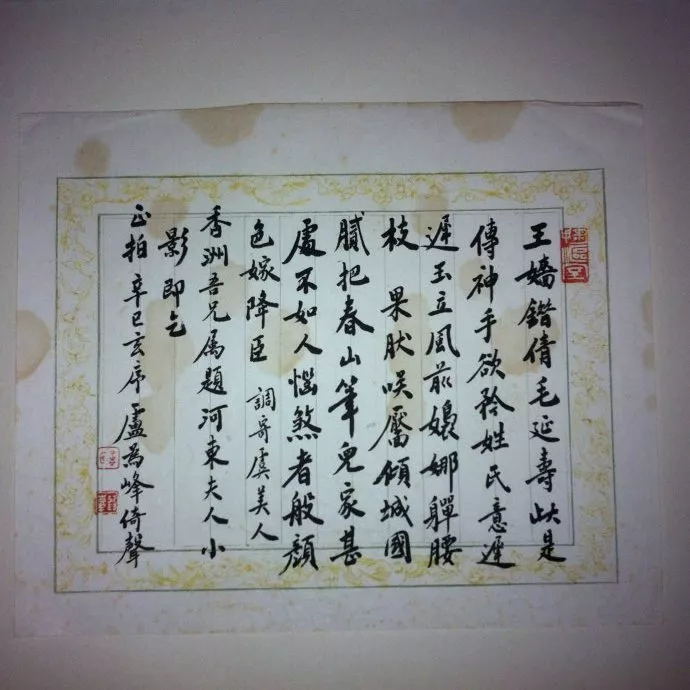 王嬙錯倩毛延壽此是
傳神手欲矜姓氏意遲
遲玉立風前嬝娜軃腰
枝 果肰咲靨傾城國
膩把春山筆兒家甚
處不如人惱煞者般顏
色嫁降臣 調寄虞美人
香洲吾兄属題河東夫人小
影即乞
正拍 辛巳玄序盧為峰倚聲